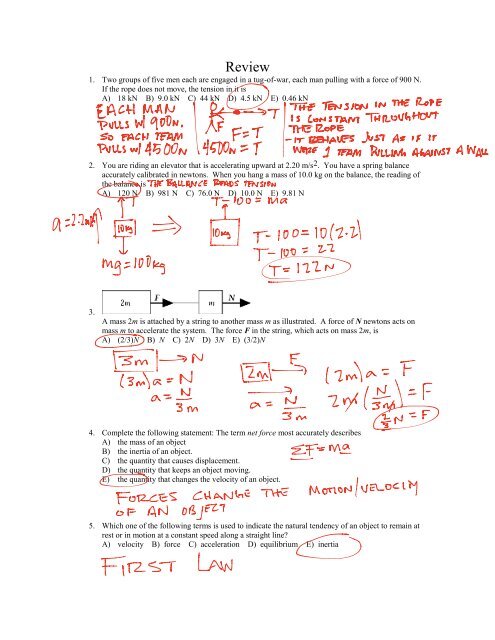 Review
1. Two groups of five men each are engaged in a tug-of-war, each man pulling with a force of 900 N.
If the rope does not move, the tension in it is
A) 18 kN B) 9.0 kN C) 44 kN D) 4.5 kN E) 0.46 kN
EACH MAN
PULLS W/ 900N.
SO EACH TEAM
PULLS W/ 4500N
T
F
F=T
4500N = T
THE TENSION IN THE ROPE
IS CONSTANT THROUGHOUT
THE ROPE
- IT BEHAVES JUST AS IF IT
WERE 1 TEAM PULLING AGAINST A WALL
2. You are riding an elevator that is accelerating upward at 2.20 m/s2. You have a spring balance
accurately calibrated in newtons. When you hang a mass of 10.0 kg on the balance, the reading of
the balance is THE BALLANCE READS TENSION
A) 120 N B) 981 N C) 76.0 N D) 10.0 N E) 9.81 N
T-100 = ma
10kg
mg=100kg
10kg
T-100 = 10(2.2)
T-100 = 22
T = 122N
3.
2m F m N
A mass 2m is attached by a string to another mass m as illustrated. A force of N newtons acts on
mass m to accelerate the system. The force F in the string, which acts on mass 2m, is
A) (2/3)N B) N C) 2N D) 3N E) (3/2)N
3m → N
(3m)a = N
a = N/3m
2m
a = N/3m
(2m)a = F
2m(N/3m) = F
2/3 N = F
4. Complete the following statement: The term net force most accurately describes
A) the mass of an object
B) the inertia of an object.
C) the quantity that causes displacement.
D) the quantity that keeps an object moving.
E) the quantity that changes the velocity of an object.
ΣF=ma
FORCES CHANGE THE MOTION/VELOCITY
OF AN OBJECT
5. Which one of the following terms is used to indicate the natural tendency of an object to remain at
rest or in motion at a constant speed along a straight line?
A) velocity B) force C) acceleration D) equilibrium E) inertia
FIRST LAW